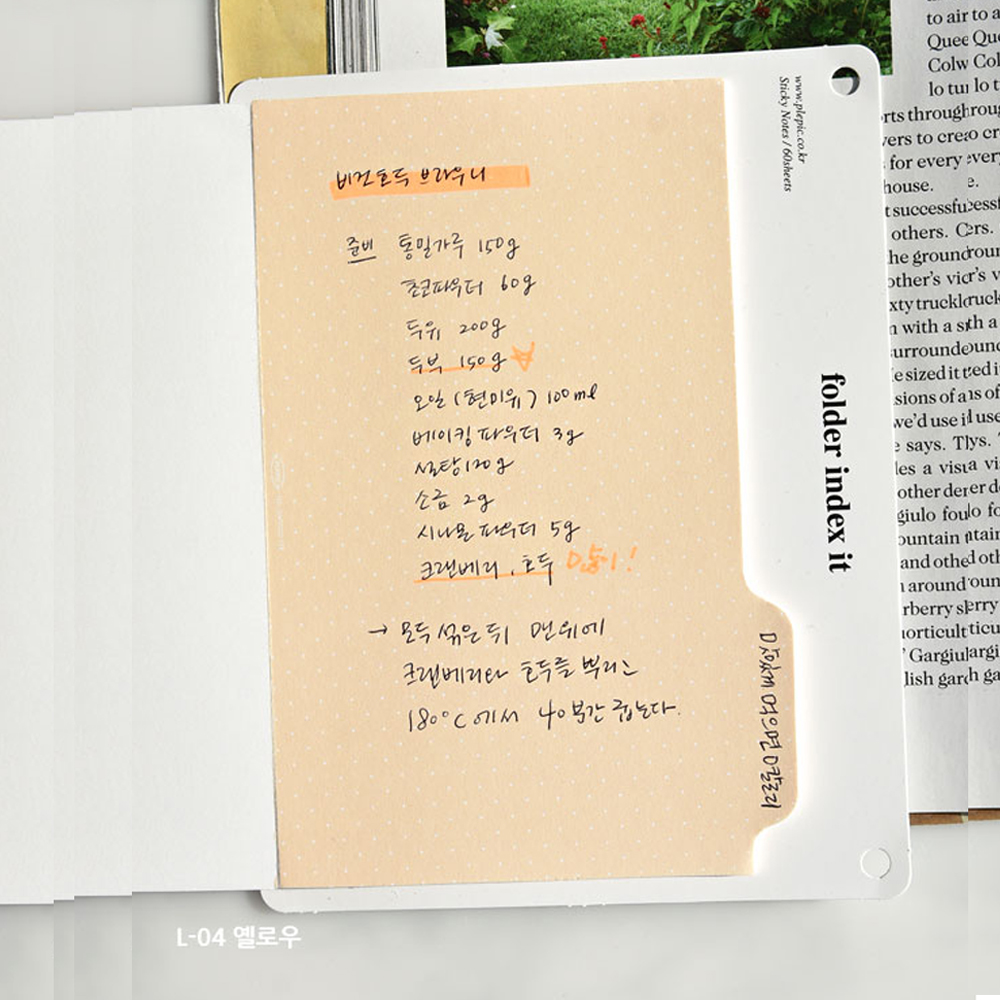 비건호두 브라우니
준비 통밀가루 150g
초코파우더 60g
두유 200g
두부 150g
오일(현미유) 100ml
베이킹파우더 3g
설탕120g
소금 2g
시나몬파우더 5g
크랜베리, 호두 많이!
→ 모두 섞은 뒤 맨위에
크랜베리와 호두를 뿌리고
180°C에서 40분간 굽는다.
맛있게 먹으면 0칼로리
www.plepic.co.kr
Sticky Notes / 60sheets
folder index it
to air
Quee
Colw
lo tu
for every
house.
t successfu
others. C
he ground
other's vic
xty truckl
n with a s
urrounde
e sized it t
we'd use i
e says. T
les a vist
other de
giulo fou
and othe
around
' Gargiu
lish gar
L-04 옐로우